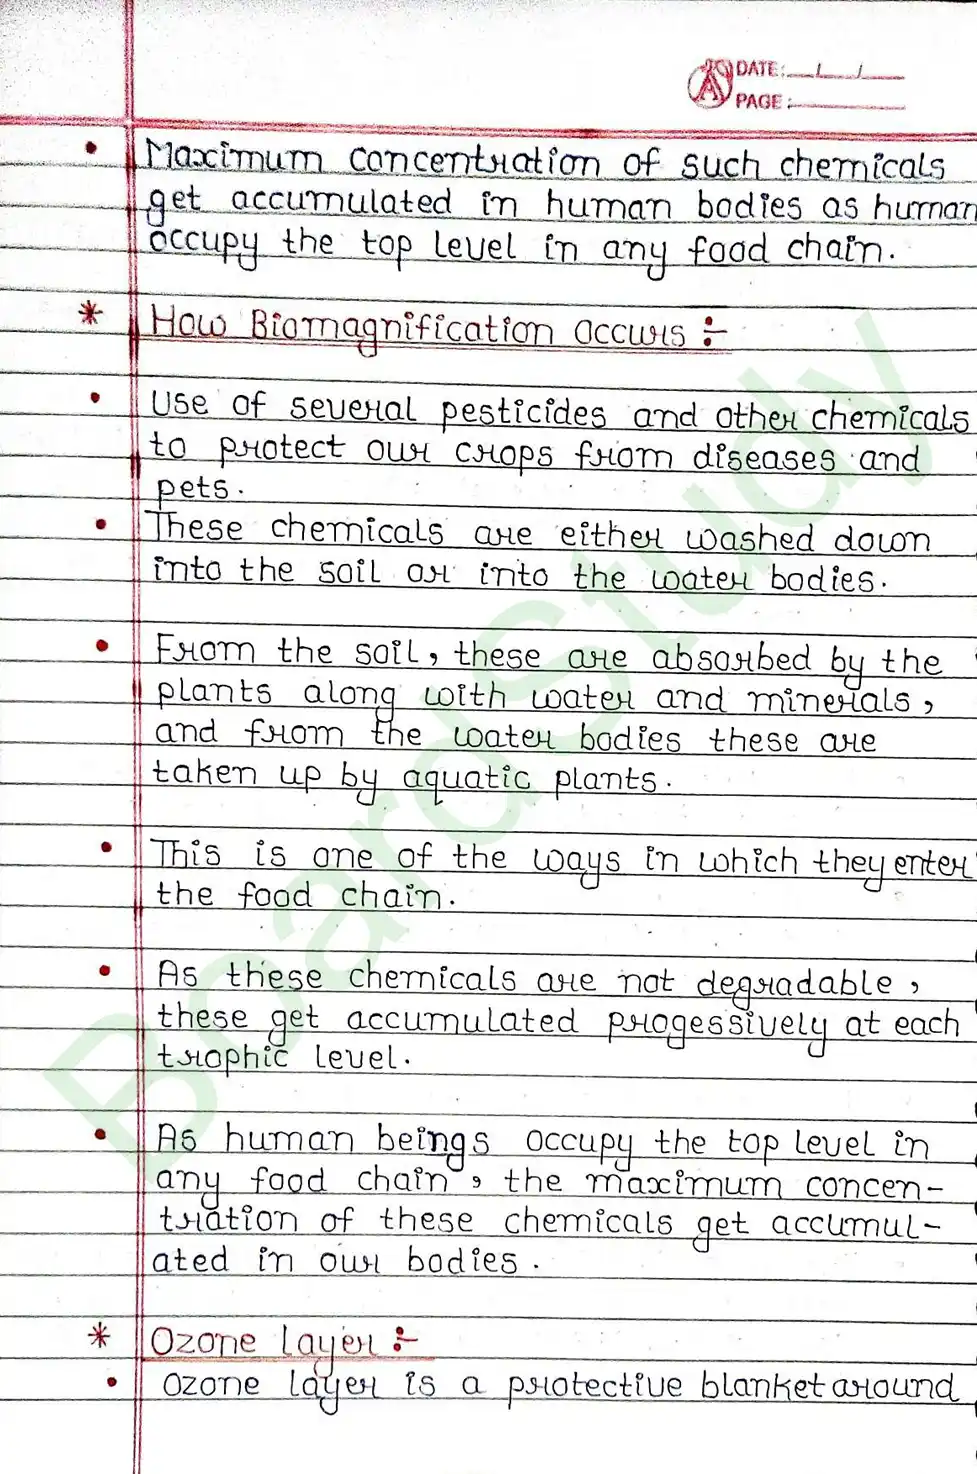 DATE: __/__/__
PAGE:
• Maximum concentration of such chemicals
get accumulated in human bodies as human
occupy the top level in any food chain.
* How Biomagnification occurs :-
• Use of several pesticides and other chemicals
to protect our crops from diseases and
pets.
• These chemicals are either washed down
into the soil or into the water bodies.
• From the soil, these are absorbed by the
plants along with water and minerals,
and from the water bodies these are
taken up by aquatic plants.
• This is one of the ways in which they enter
the food chain.
• As these chemicals are not degradable,
these get accumulated progessively at each
trophic level.
• As human beings occupy the top level in
any food chain, the maximum concen-
tration of these chemicals get accumul-
ated in our bodies.
* Ozone layer :-
• Ozone layer is a protective blanket around
BoardStudy